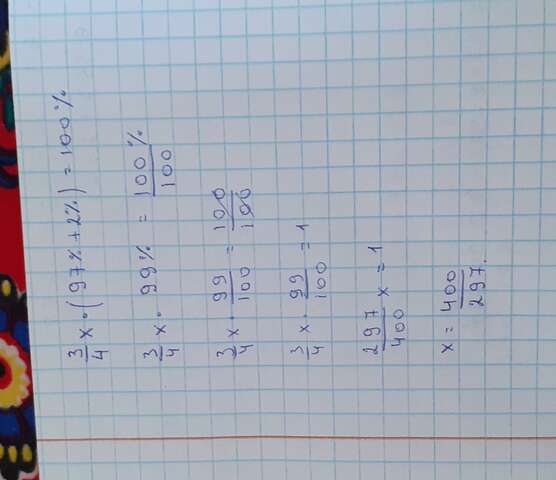 3/4 x · (97% + 2%) = 100%
3/4 x · 99% = 100%/100
3/4 x · 99/100 = 100/100
3/4 x · 99/100 = 1
297/400 x = 1
x = 400/297.